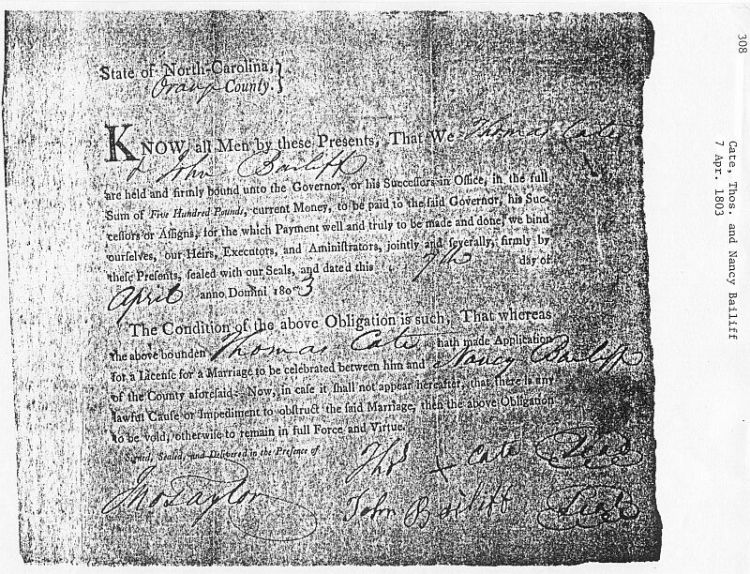 State of North-Carolina,
Orange County.
KNOW all Men by these Presents, That We Thomas Cate
& John Bailiff
are held and firmly bound unto the Governor, or his Successors in Office, in the full
Sum of Five Hundred Pounds, current Money, to be paid to the said Governor, his Suc-
cessors or Assigns, for the which Payment well and truly to be made and done, we bind
ourselves, our Heirs, Executors, and Aministrators, jointly and severally, firmly by
these Presents, sealed with our Seals, and dated this 7th day of
April anno Domini 1803
The Condition of the above Obligation is such, That whereas
the above bounden Thomas Cate hath made Application
for a License for a Marriage to be celebrated between him and Nancy Bailiff
of the County aforesaid: Now, in case it shall not appear hereafter, that there is any
lawful Cause or Impediment to obstruct the said Marriage, then the above Obligation
to be void, otherwise to remain in full Force and Virtue.
Sealed, and Delivered in the Presence of
Thos x Cate Seal
Jno Taylor
John Bailiff Seal
308
Cate, Thos. and Nancy Bailiff
7 Apr. 1803